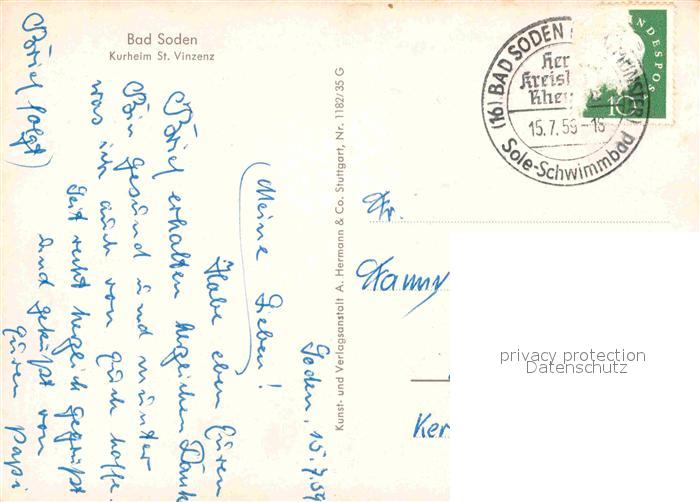 Bad Soden
Kurheim St. Vinzenz
Soden, 15.7.59
Meine Lieben!
Habe eben Euren
Brief erhalten herzlichen Dank
Bin gesund und munter
was ich auch von Euch hoffe.
Seit recht herzlich gegrüßt
und geküßt von
Euren Papi
(Brief folgt)
Kunst- und Verlagsanstalt A. Hermann & Co. Stuttgart, Nr. 1182/35 G
(16) BAD SODEN
Her
Kreis
Rhe
15.7.59-18
Sole-Schwimmbad
NDESPOS
10
Fr.
Ker
privacy protection
Datenschutz